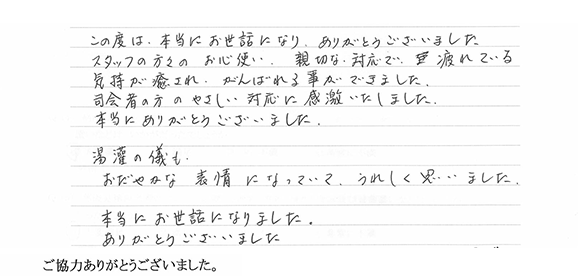 この度は、本当にお世話になり、ありがとうございました
スタッフの方々の お心使い、親切な対応で、疲れている
気持が癒され、がんばれる事ができました。
司会者の方の やさしい 対応に 感激いたしました。
本当に ありがとうございました。
湯灌の儀も、
おだやかな 表情 になっていて、うれしく思いました。
本当に お世話になりました。
ありがとうございました
ご協力ありがとうございました。